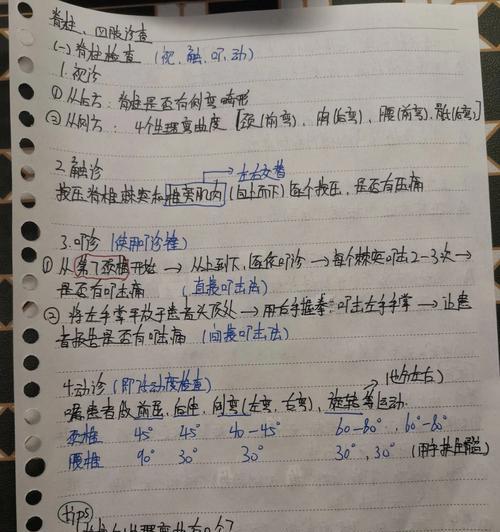 脊柱、四肢诊查
(一)脊柱检查 (视、触、叩、动)
1.视诊
①从后方:脊柱是否有侧弯畸形
②从侧方:4个生理弯曲度[颈(前弯)、胸(后弯)、腰(前弯)、骶(后弯)]
2.触诊
→左右交替
按压脊椎棘突和椎旁肌肉(自上而下)逐个按压,是否有压痛
3.叩诊(使用叩诊锤)
①从第7颈椎开始→从上到下,逐次叩诊→每个棘突叩击2-3次→
是否有叩击痛 (直接叩击法)
②将左手掌平放于患者头顶处→用右手握拳:叩击左手手掌→让患
者报告是否有叩击痛 (间接叩击法)
4.动诊(即活动度检查) →(也分左右)
嘱患者做前屈、后伸、侧弯(左弯、右弯)、旋转等运动.
颈椎 45° 45° 40-45° 60-80°、60-80°
腰椎 90° 30° 30° 30°、30°
tips